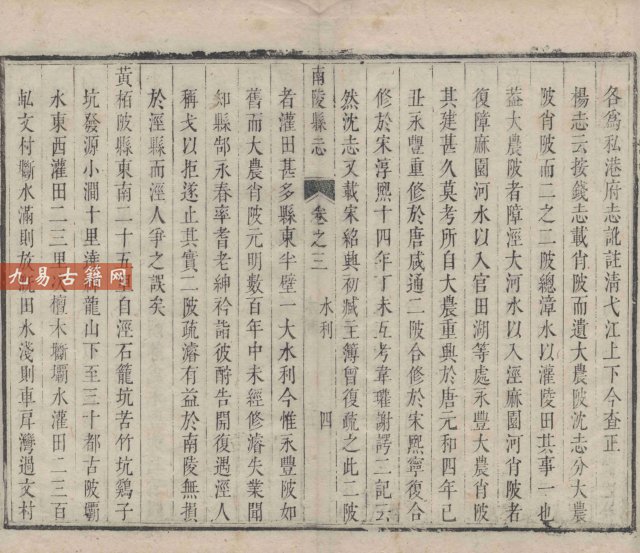 各爲私港府志訛註清弋江上下今查正
楊志云按錢志載肖陂而遺大農陂沈志分大農
陂肖陂而二之二陂總漳水以灌陵田其事一也
蓋大農陂者障涇大河水以入涇麻園河肖陂者
復障麻園河水以入官田湖等處永豐大農肖陂
其建甚久莫考所自大農重興於唐元和四年已
丑永豐重修於唐咸通二陂合修於宋熙寧復合
修於宋淳熙十四年丁未互考韋瓘謝諤二記云
然沈志又載宋紹興初臧主簿曾復疏之此二陂
南陵縣志 卷之三 水利 四
者灌田甚多縣東半壁一大水利今惟永豐陂如
舊而大農肖陂元明數百年中未經修濬失業聞
知縣郜永春率耆老紳衿詣彼酧告開復遇涇人
稱戈以拒遂止其實二陂疏濬有益於南陵無損
於涇縣而涇人爭之誤矣
黃栢陂縣東南二十五
自涇石籠坑苦竹坑鷄子
坑發源小澗十里
龍山下至三十都古陂壩
水東西灌田二三甲
檀木斷壩水灌田二三百
畝文村斷水滿則放
田水淺則車戽灣過文村
九易古籍网